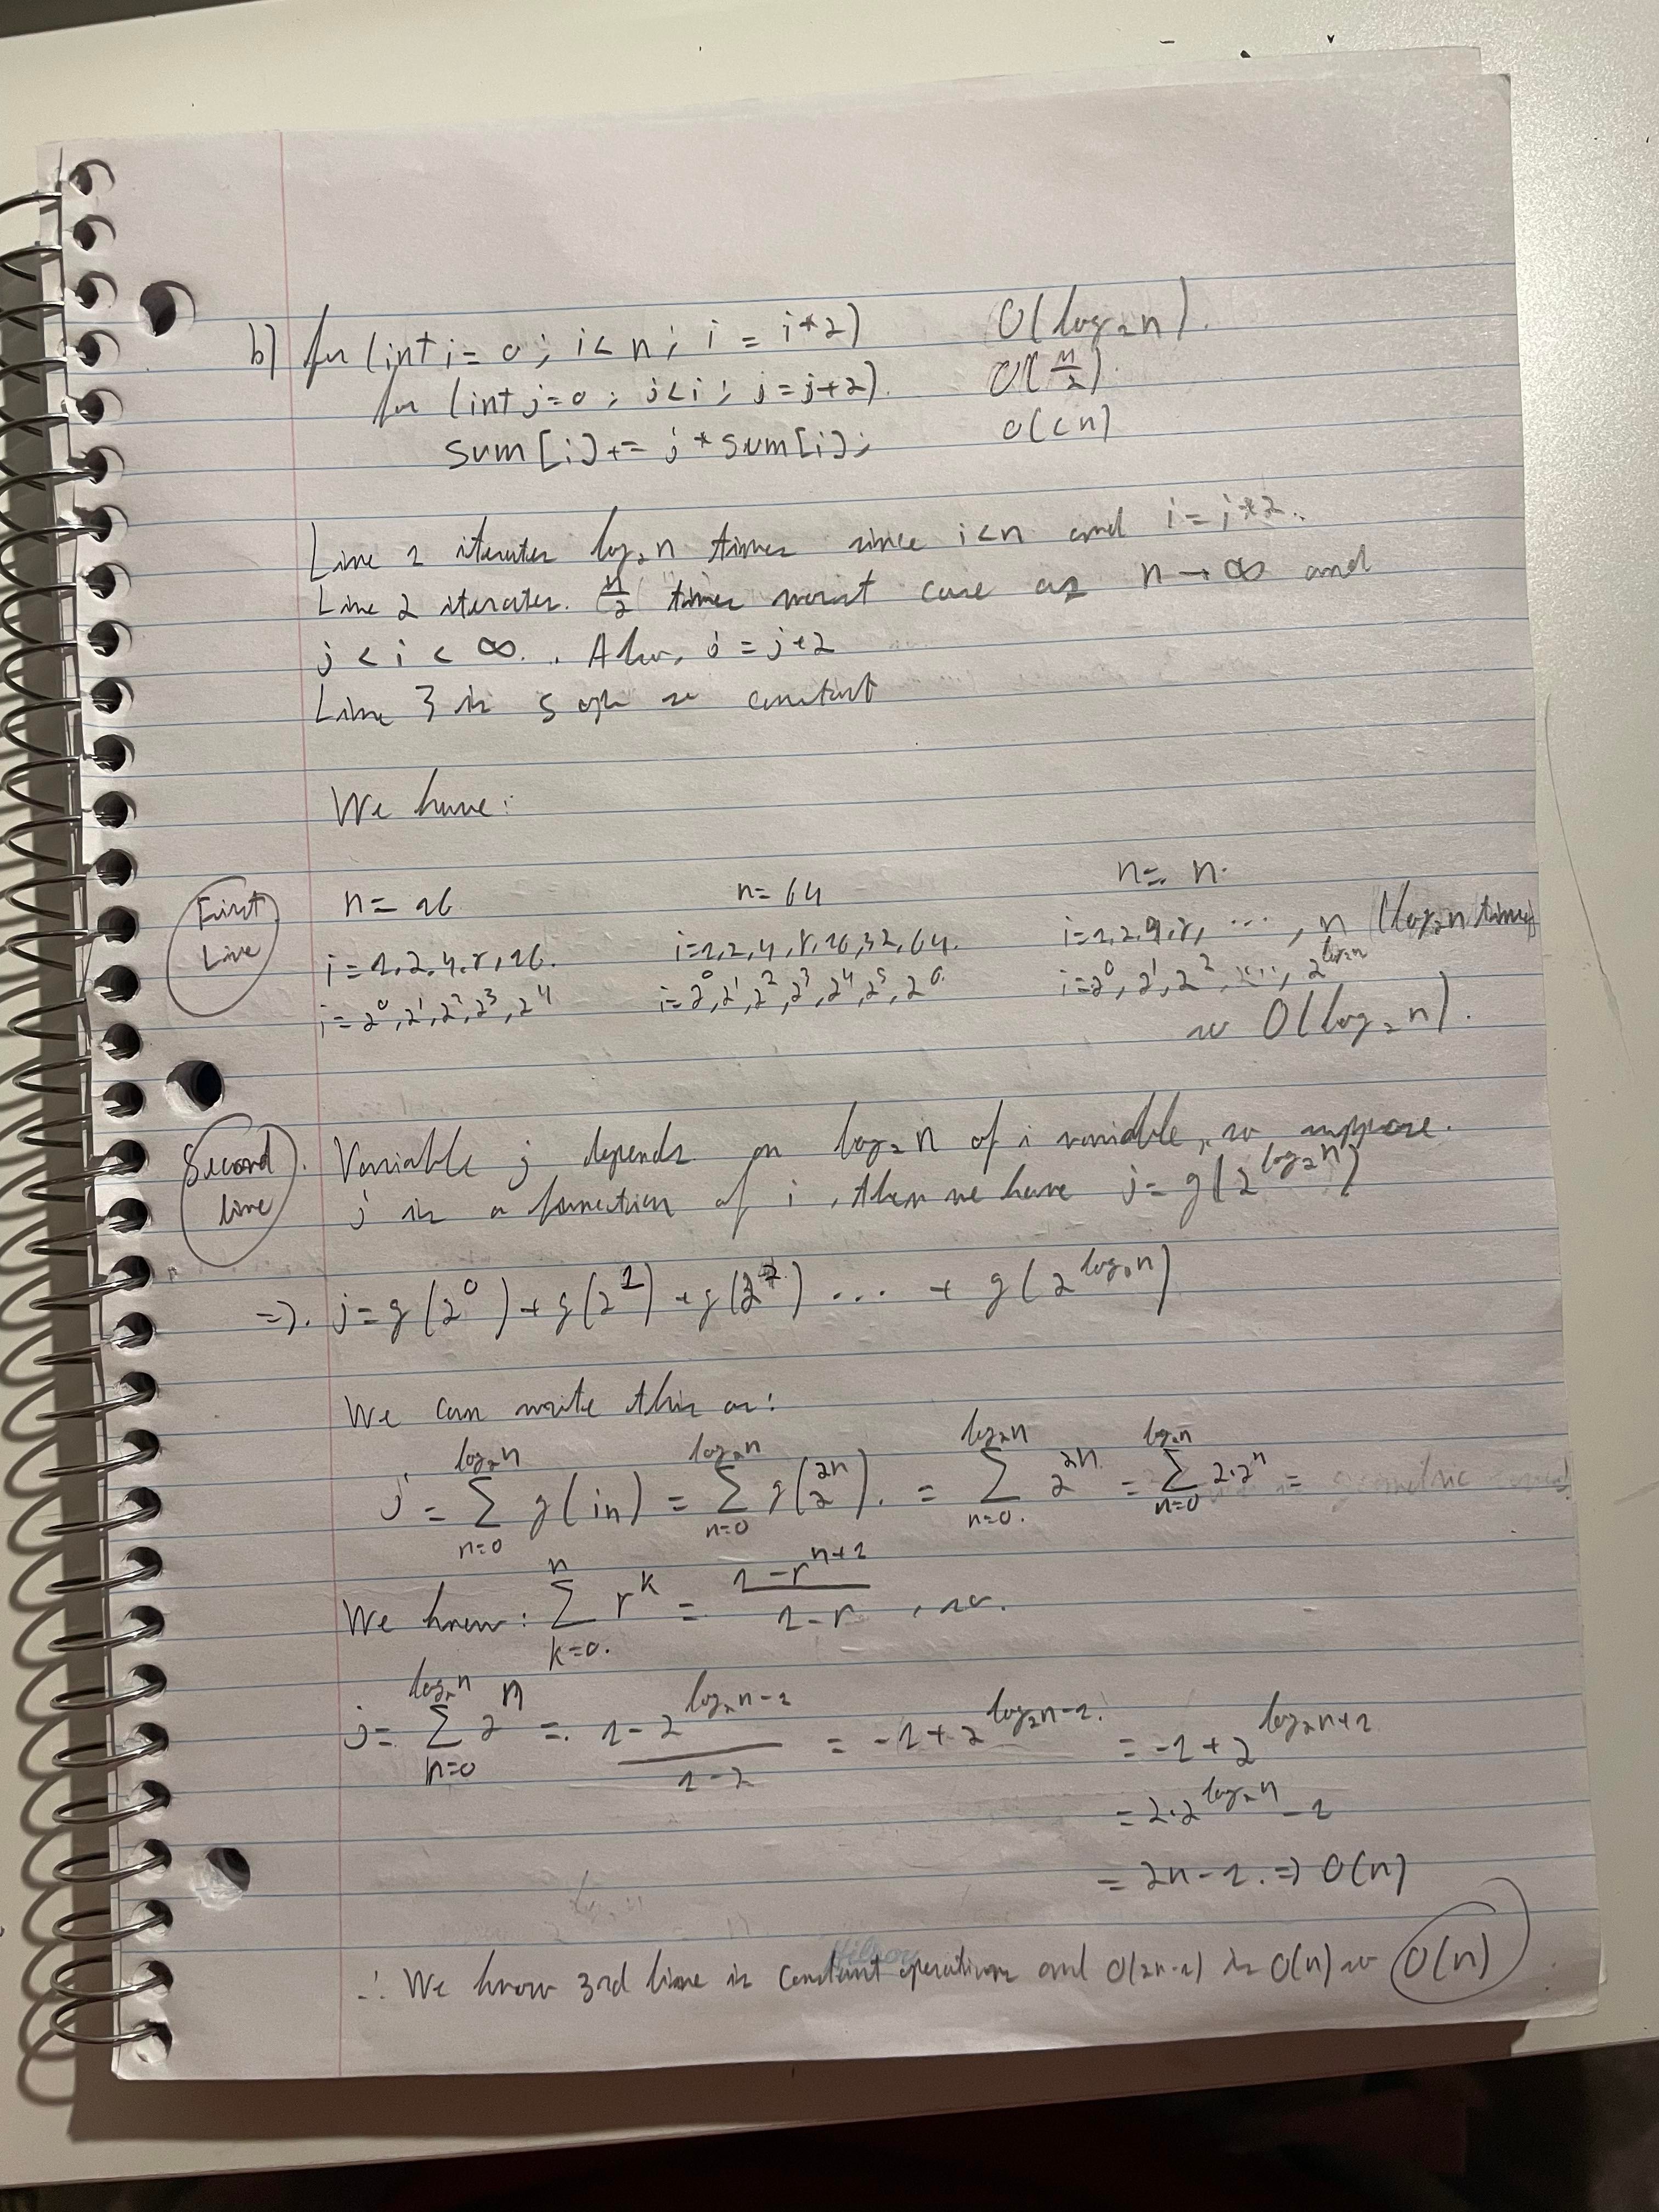 b) for (int i = 0; i < n; i = i*2) O(log₂n).
for (int j=0; j<i; j=j+2). O(n/2).
sum[i] += j*sum[i]; O(cn)
Line 1 iterates log₂n times since i<n and i = i*2.
Line 2 iterates. n/2 times worst case as n → ∞ and
j < i < ∞. Also, j = j+2
Line 3 is 5 ops so constant
We have:
First Line
n = 16 n = 64 n = n.
i = 1,2,4,8,16. i=1,2,4,8,16,32,64. i=1,2,4,8, ..., n (log₂n times)
i = 2⁰,2¹,2²,2³,2⁴ i=2⁰,2¹,2²,2³,2⁴,2⁵,2⁶. i=2⁰,2¹,2², ..., 2^(log₂n)
so O(log₂n).
Second line
Variable j depends on log₂n of i variable, so suppose.
j is a function of i, then we have j = g(2^(log₂n))
=>. j = g(2⁰) + g(2¹) + g(2²) ... + g(2^(log₂n))
We can write this as:
j = Σ_{n=0}^{log₂n} g(in) = Σ_{n=0}^{log₂n} g(2^(2n)). = Σ_{n=0}^{log₂n} 2^(2n) = Σ_{n=0}^{log₂n} 2·2^n = geometric
We know: Σ_{k=0}^{n} r^k = (1-r^(n+1))/(1-r), so.
j = Σ_{n=0}^{log₂n} 2^n = (1-2^(log₂n-1))/(1-2) = -1+2^(log₂n-1). = -1+2^(log₂n+1)
= 2·2^(log₂n) - 1
= 2n-1. => O(n)
∴ We know 3rd line is constant operations and O(2n-1) is O(n) so O(n)
Hilroy